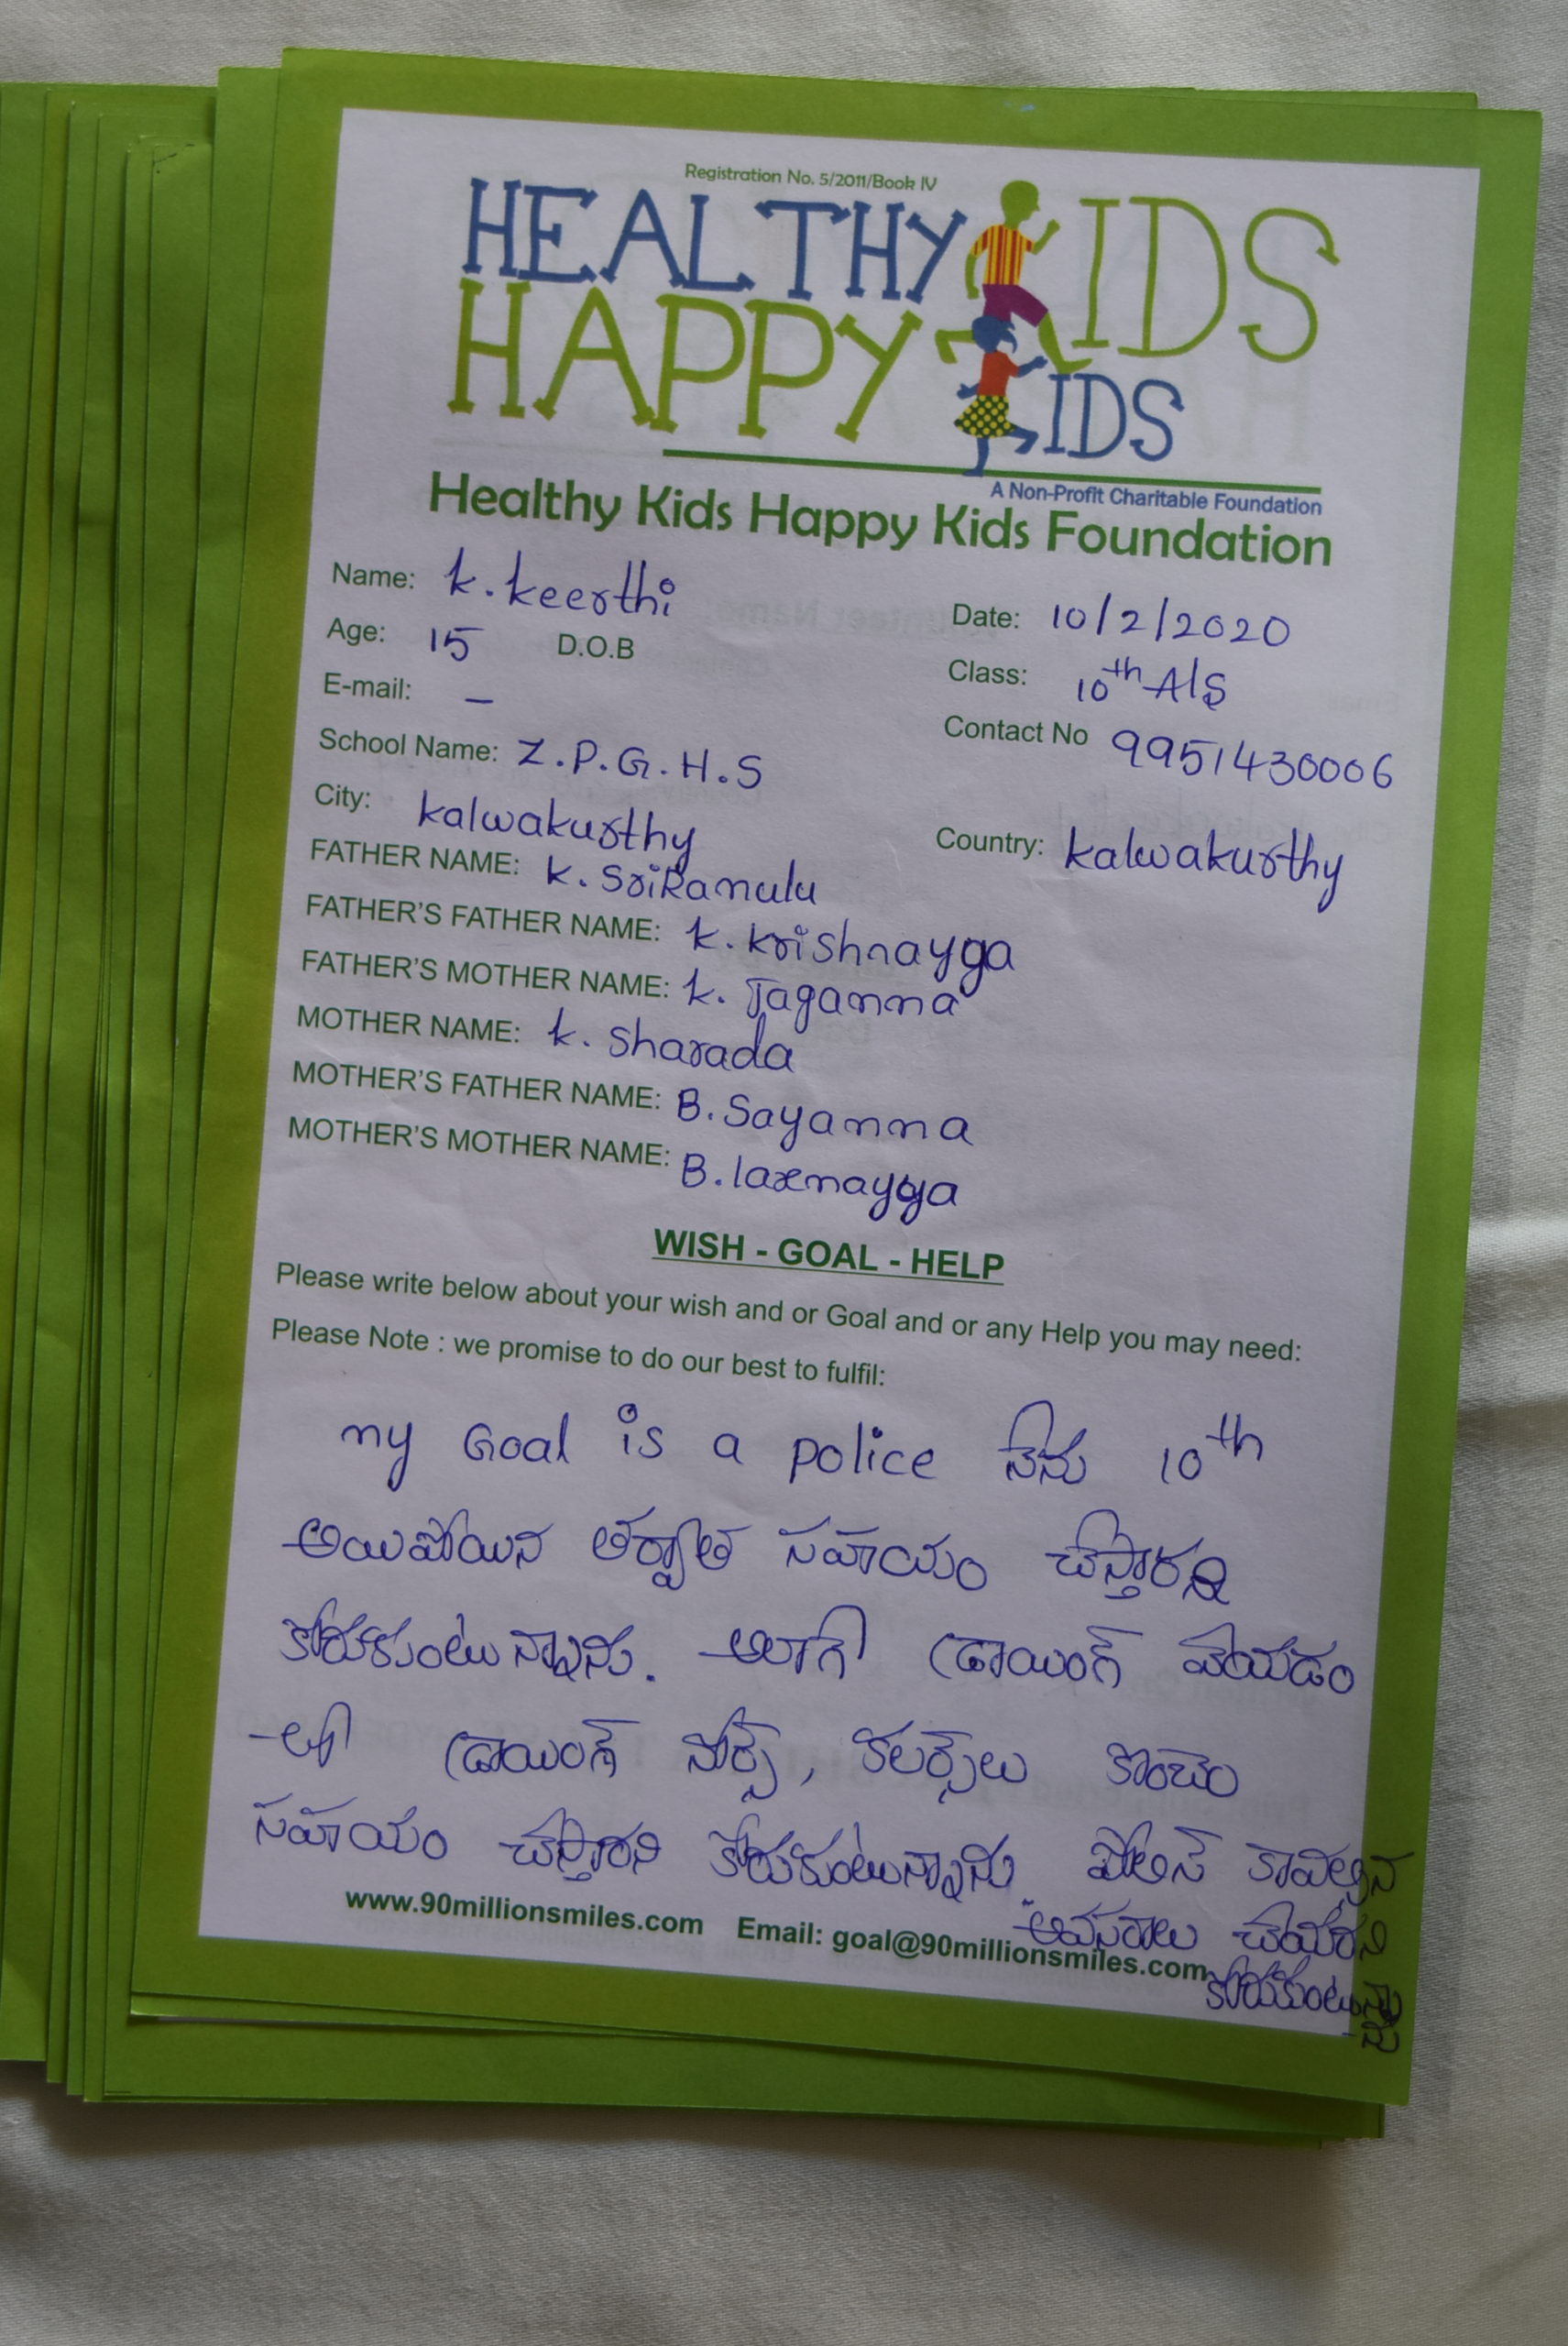 Registration No. 5/2011/Book IV
HEALTHY KIDS
HAPPY KIDS
A Non-Profit Charitable Foundation
Healthy Kids Happy Kids Foundation
Name: K. Keerthi
Date: 10/2/2020
Age: 15 D.O.B
Class: 10th A/S
E-mail: –
Contact No 9951430006
School Name: Z.P.G.H.S
City: kalwakurthy
Country: kalwakurthy
FATHER NAME: K. SriRamulu
FATHER'S FATHER NAME: K. Krishnayya
FATHER'S MOTHER NAME: K. Jaganma
MOTHER NAME: K. Sharada
MOTHER'S FATHER NAME: B. Sayanna
MOTHER'S MOTHER NAME: B. laxmayya
WISH - GOAL - HELP
Please write below about your wish and or Goal and or any Help you may need:
Please Note : we promise to do our best to fulfil:
my Goal is a police నేను 10th
అయిపోయిన తర్వాత సహయం చేస్తారని
కోరుకుంటున్నాను. అలాగే డ్రాయింగ్ వేయడం
డ్రాయింగ్ కలర్స్‌లు కొంచెం
సహయం చేస్తారని కోరుకుంటున్నాను. పోలీస్ కావల్సిన
అవసరాలు చేయరని
కోరుకుంటున్నాను
www.90millionsmiles.com Email: goal@90millionsmiles.com